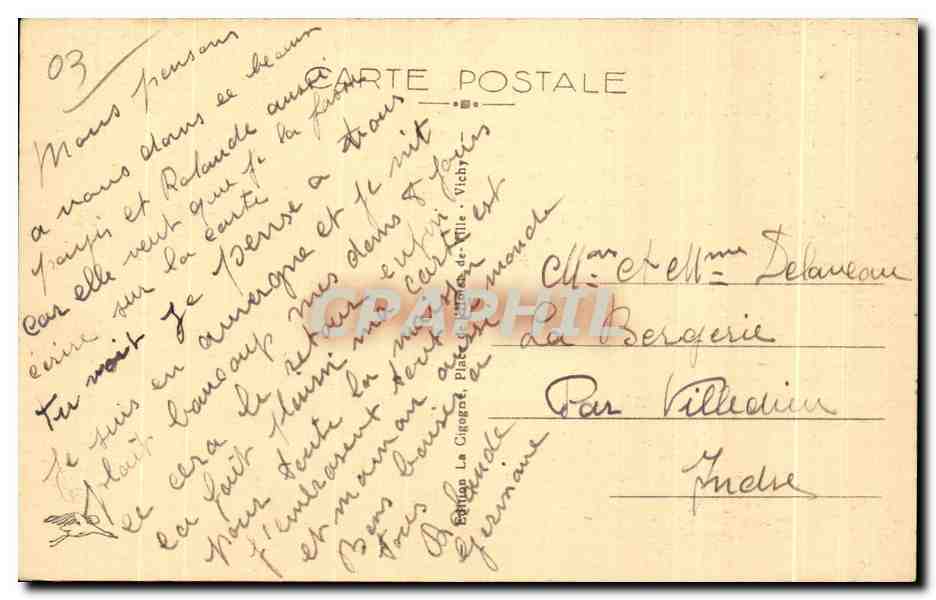 03
CARTE POSTALE
Nous pensons
a vous dans ce beaux
pays et Rolande aussi
car elle veut que je la fasse
écrire sur la carte
Tu voit je pense a vous
Je suis en auvergne et je m'y
plait beaucoup mes dans 8 jours
ce cera le retour enfin
ca fait plaisir ma carte est
pour toute la maison
j'embrasent tout le monde
et maman aussi
Bons baisers a
tous Rolande
Germaine
Edition La Cigogne, Place de l'Hôtel-de-Ville - Vichy
CPAPHIL
Mr et Mme Delaneau
La Bergerie
Par Villedieu
Indre